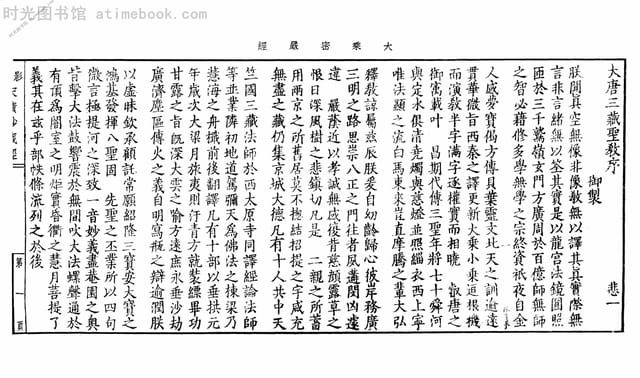 时光图书馆 - atimebook.com
大乘密嚴經
大唐三藏聖教序
御製
悲一
朕聞真空無像非像教無以譯其真實際無
言非言緒無以筌其實是以龍宮法鏡圓照
匝於三千鷲嶺玄門方廣周於百億師無師
之智必藉修多學無學之宗終資祇夜自金
人感夢寶偈方傳貝葉靈文北天之訓逾遠
貫華微旨西秦之譯更新大乘小乘逗根機
而演教半字滿字逐權實而相曉 叡唐之
御寓載叶 昌期代傳三聖年將七十舜河
與定水俱清堯燭與慧燈並照緇衣西上寧
唯法顯之流白馬東來豈直摩騰之輩大弘
釋教諒屬茲辰朕爰自幼齡歸心彼岸務廣
三明之路思崇八正之門往者夙遘閔凶遽
違 嚴蔭近以孝誠無感復背慈顏露草之
恨日深風樹之悲鎮切凡是 二親之所蓄
用兩京之所舊居莫不捴結招提之宇咸充
無盡之藏仍集京城大德凡有十人共中天
竺國三藏法師於西太原寺同譯經論法師
等並業隣初地道駕彌天為佛法之棟梁乃
慧海之舟檝前後翻譯凡有十部以垂拱元
年歲次大梁月旅夷則汗青方就裝縹畢功
甘露之旨既深大雲之喻方遠庶永垂沙劫
廣濟塵區傳火之義自明寫瓶之辯逾潤朕
以虛昧欽承顧託常願紹隆三寶安大寶之
鴻基發揮八聖固 先聖之丕業所以四句
微言極提河之深致一音妙義盡菴園之奧
昔擊大法鼓響震於無間吹大法螺聲通於
有頂為闇室之明炬實昏衢之慧月菩提了
義其在茲乎部帙條流列之於後
影宋磧砂藏經
第一頁